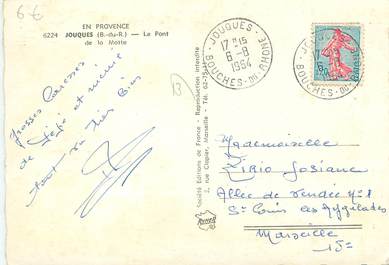 6 €
EN PROVENCE
6224 JOUQUES (B.-du-R.) — Le Pont
de la Motte
Grosses Caresses
de Jéjé et mémé
tout va très bien
13
Société Editions de France - Reproduction interdite
2, rue Clapier, Marseille - Tél. 62-75
JOUQUES
17H15
6-8
1964
BOUCHES-DU-RHONE
JOUQUES
17H15
6-8
BOUCHES-DU-RHONE
Mademoiselle
Josiane
Allée de Vendée N°1
St Louis les Aygalades
Marseille
15e